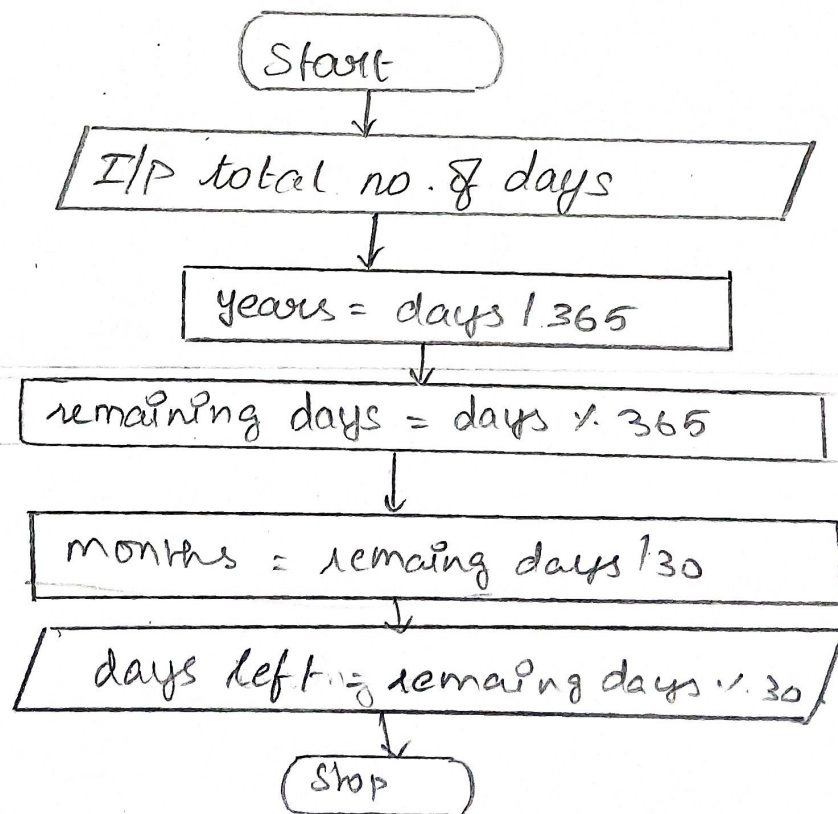 Start
I/P total no. of days
years = days / 365
remaining days = days % 365
months = remaing days / 30
days left = remaing days % 30
Stop